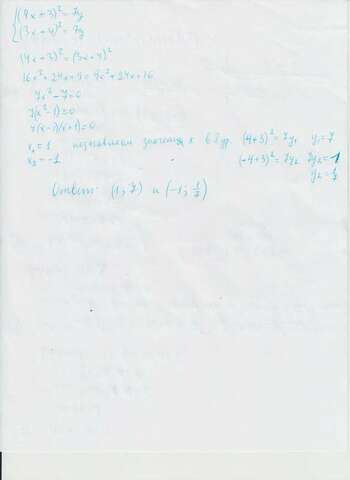 {(4x+3)²=7y
{(3x+4)²=7y
(4x+3)²=(3x+4)²
16x²+24x+9=9x²+24x+16
7x²-7=0
7(x²-1)=0
7(x-1)(x+1)=0
x₁=1 значения x в 6 ур. (4+3)²=7y₁ y₁=7
x₂=-1 (-4+3)²=7y₂ 7y₂=1
y₂=1/7
Ответ: (1; 7) и (-1; 1/7)